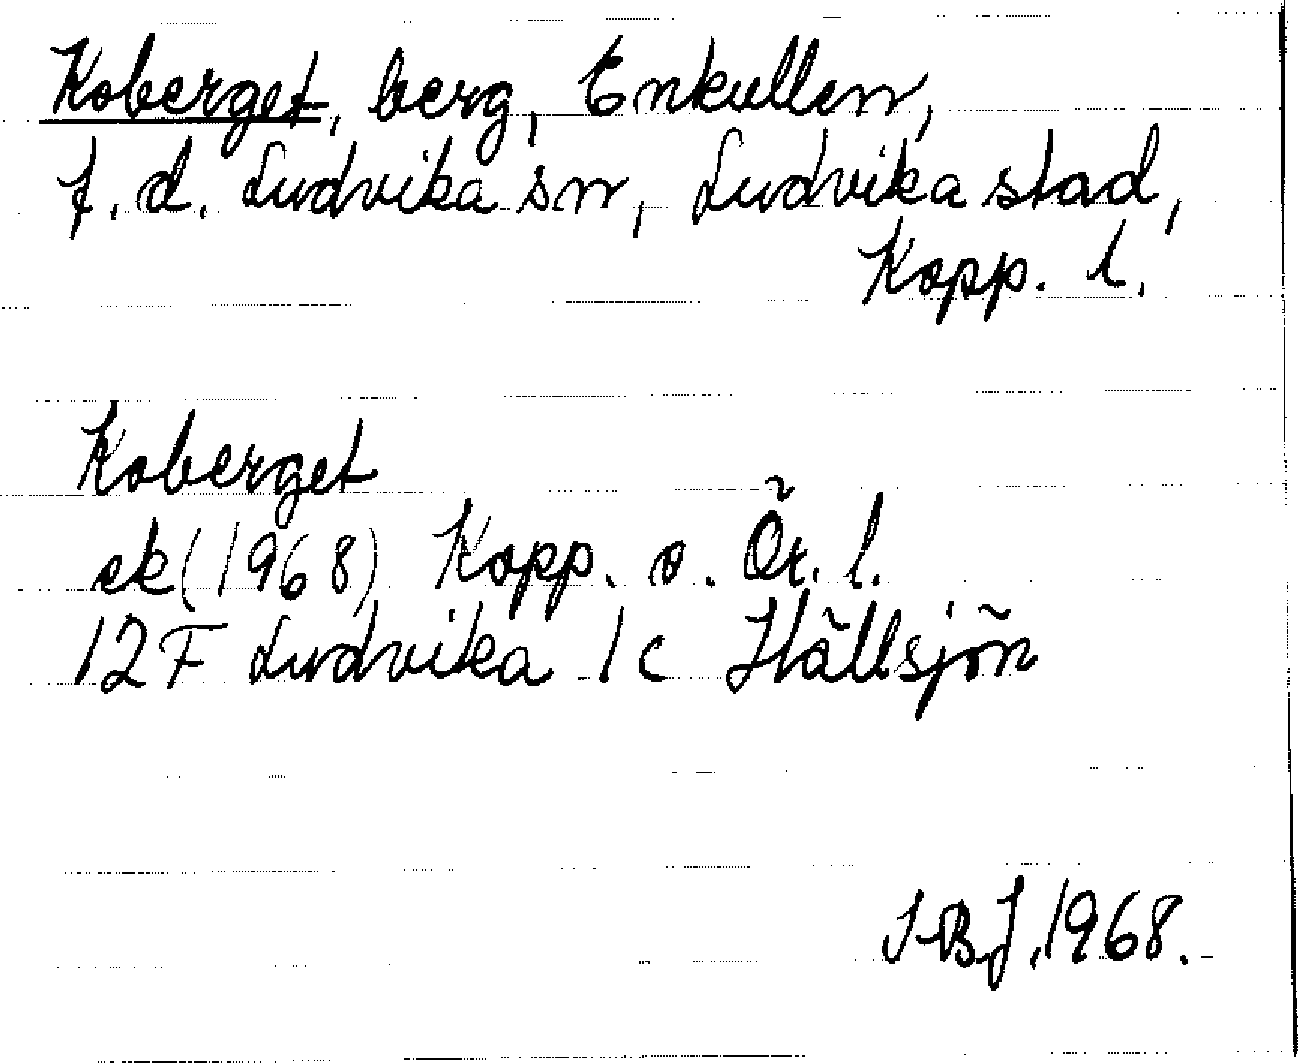 Koberget, berg, Enkullen,
f. d. Ludvika sn, Ludvika stad,
Kopp. l.
Koberget
ek (1968) Kopp. o. Ör. l.
12F Ludvika 1c Hällsjön
I-BJ, 1968.